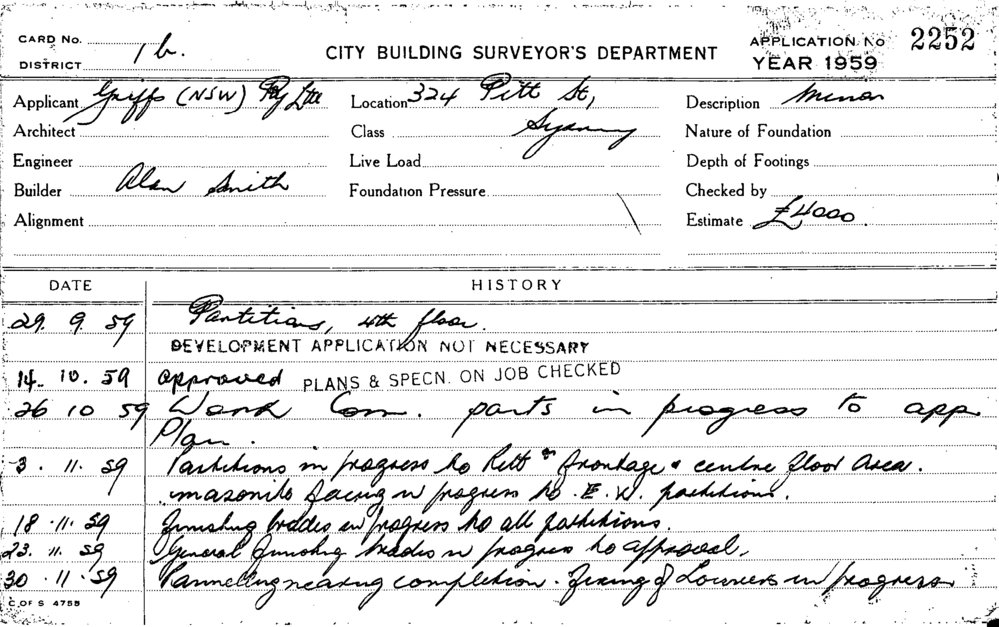 CARD No.
DISTRICT 1b.
CITY BUILDING SURVEYOR'S DEPARTMENT
APPLICATION No 2252
YEAR 1959
Applicant Griffs (NSW) Pty Ltd
Location 324 Pitt St,
Description Minor
Architect
Class Sydney
Nature of Foundation
Engineer
Live Load
Depth of Footings
Builder Alan Smith
Foundation Pressure
Checked by
Alignment
Estimate £4000.
DATE HISTORY
29. 9. 59 Partitions, 4th floor.
DEVELOPMENT APPLICATION NOT NECESSARY
14. 10. 59 approved PLANS & SPECN. ON JOB CHECKED
26 10 59 Work Com. parts in progress to app
Plan.
3. 11. 59 Partitions in progress to Pitt St frontage & centre floor area.
masonite facing in progress to . E. W. partitions.
18. 11. 59 finishing trades in progress to all partitions.
23. 11. 59 General finishing trades in progress to approval.
30. 11. 59 Pannelling nearing completion. fixing of Louvers in progress
C. OF S 4755